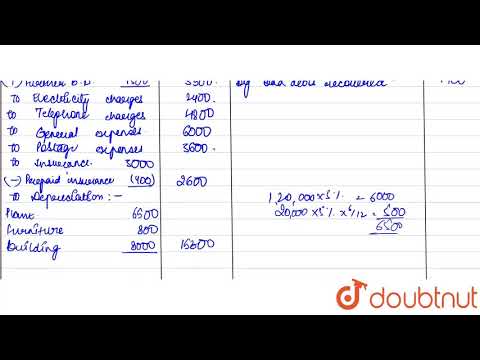 3500.
By Bad debts recovered
To Electricity charges 2400.
to Telephone charges 4800
to General expenses. 6000
to Postage expenses 3600.
to Insurance. 3000
(-) Prepaid insurance (400) 2600
to Depreciation :-
Plant 6500
Furniture 800
Building 8000 15300
1,20,000 x 5% = 6000
20,000 x 5% x 6/12 = 500
6500
doubtnut